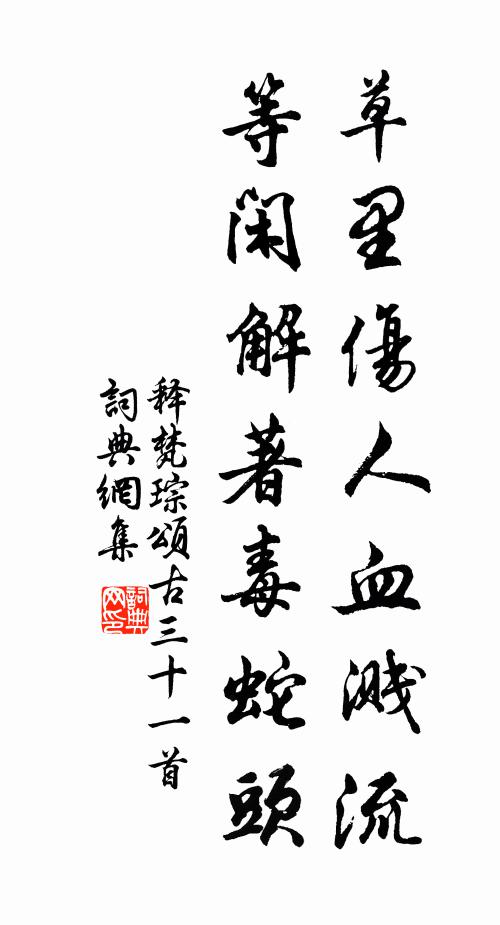 草里傷人血濺流
等閑解著毒蛇頭
释梵琮頌古三十一首
詞典網集
詞典网印